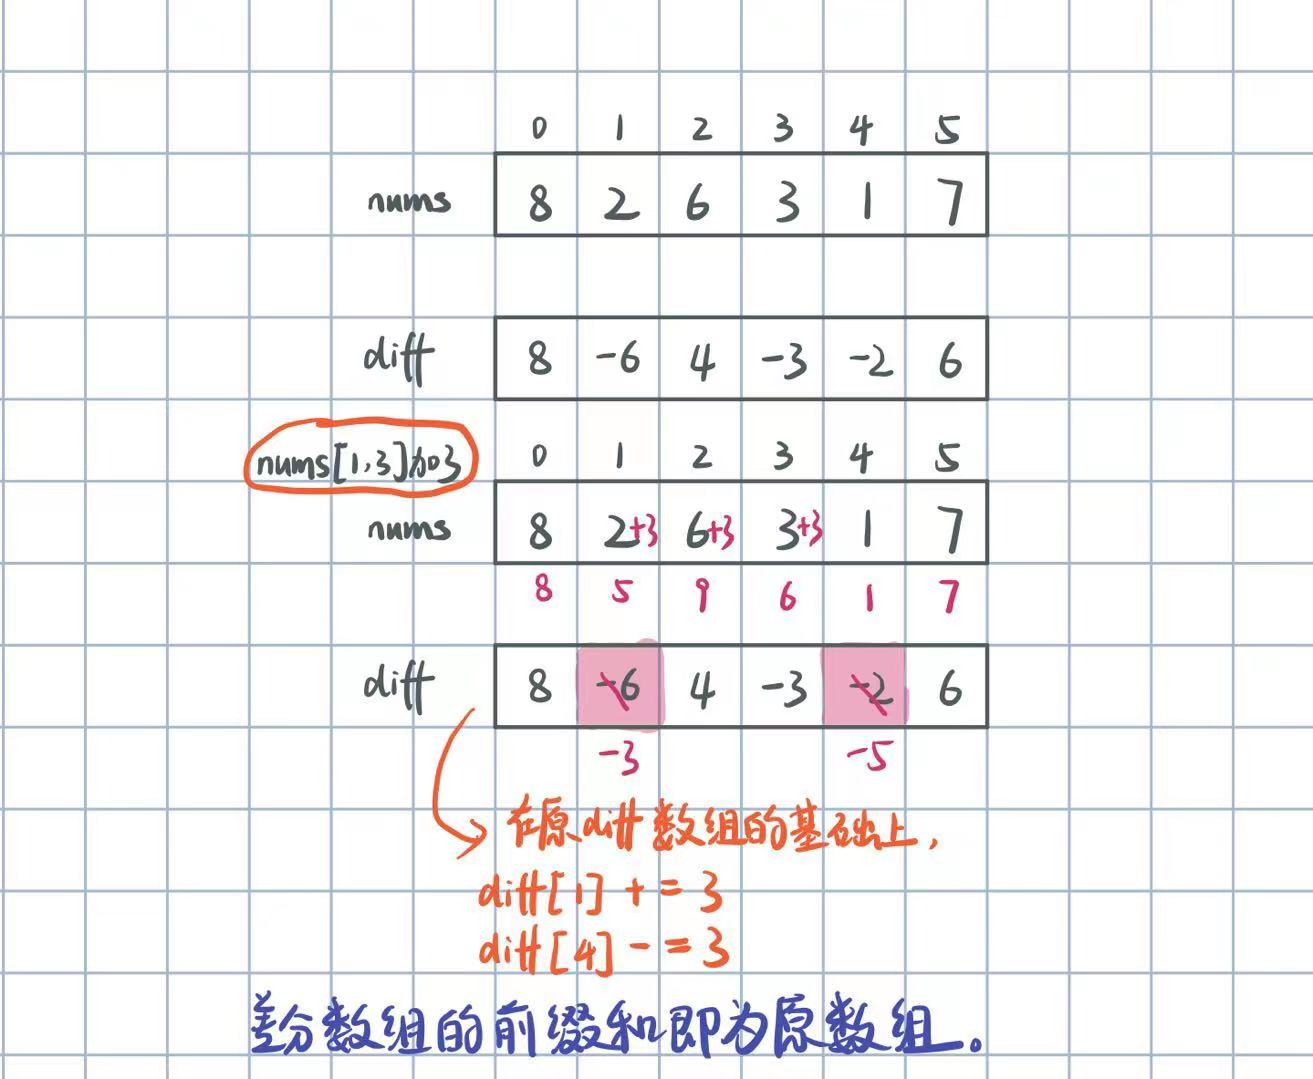 0 1 2 3 4 5
nums 8 2 6 3 1 7
diff 8 -6 4 -3 -2 6
nums[1,3]加3 0 1 2 3 4 5
nums 8 2+3 6+3 3+3 1 7
8 5 9 6 1 7
diff 8 -6 4 -3 -2 6
-3 -5
在原diff数组的基础上,
diff[1] += 3
diff[4] -= 3
差分数组的前缀和即为原数组。